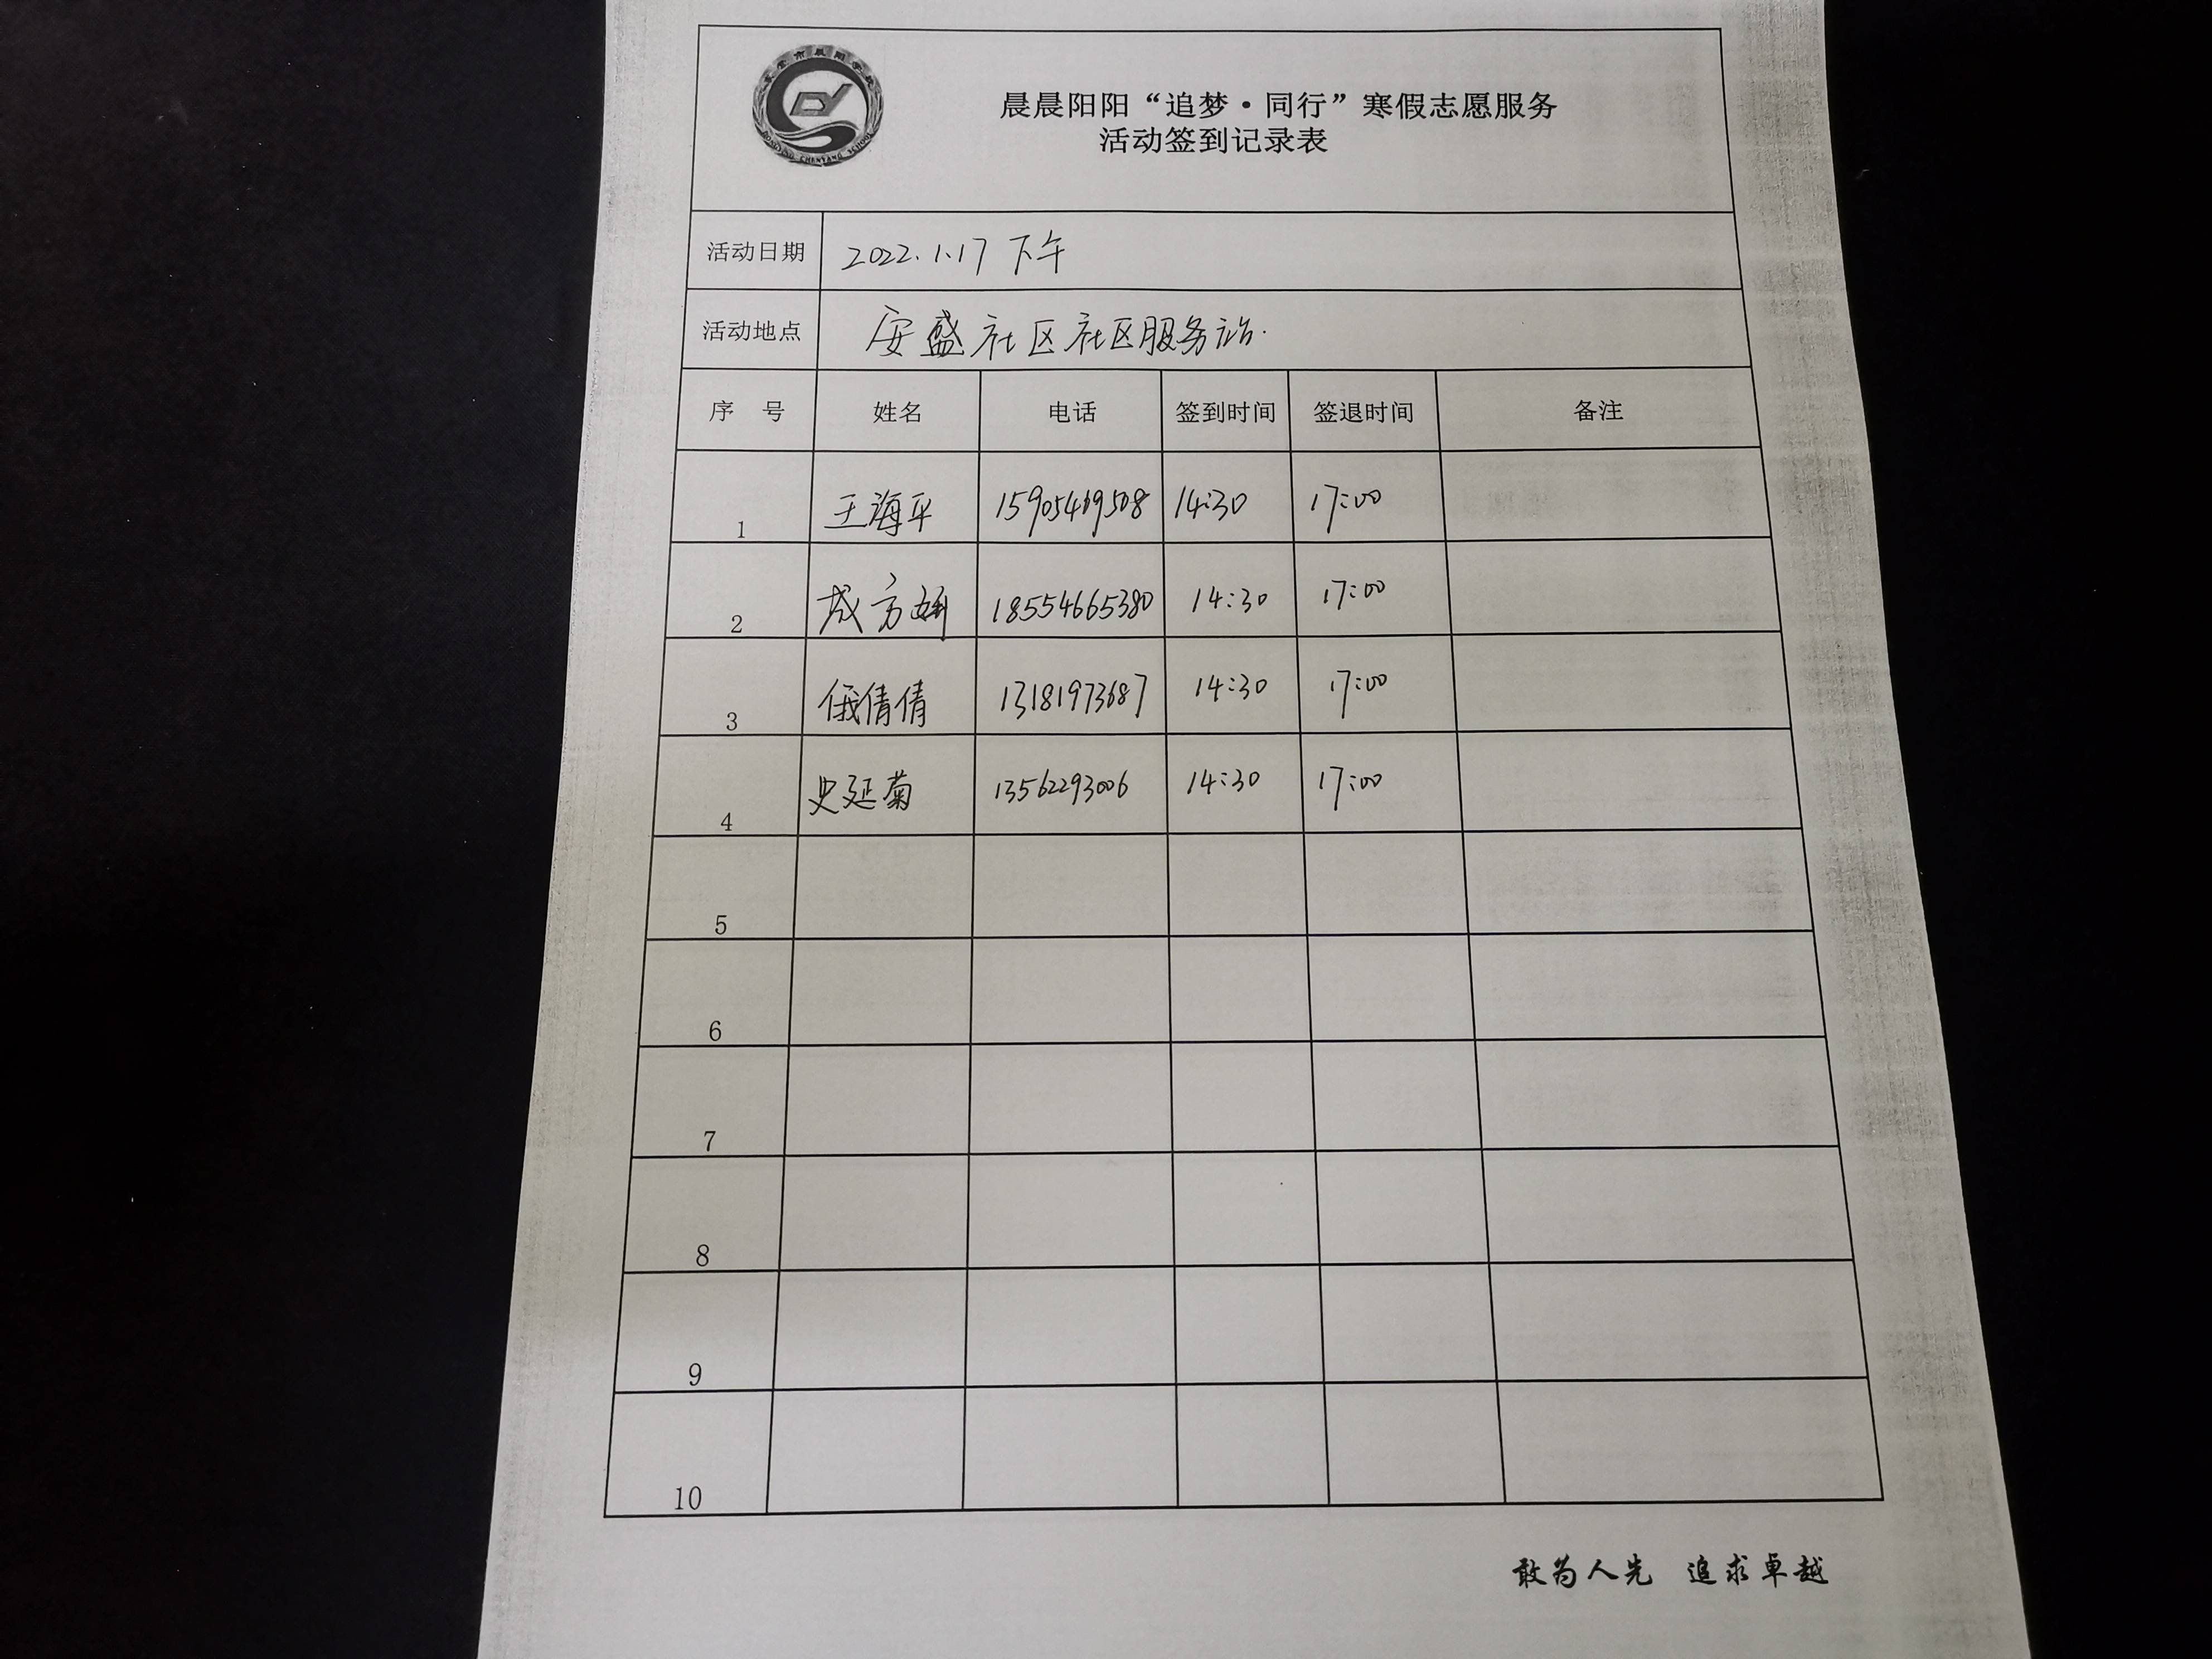 东营市晨阳学校
DONGYING CHENYANG SCHOOL
晨晨阳阳“追梦·同行”寒假志愿服务
活动签到记录表
活动日期 2022.1.17 下午
活动地点 安盛社区社区服务站.
序 号 姓名 电话 签到时间 签退时间 备注
1 王海平 15905469508 14:30 17:00
2 成方娟 18554665380 14:30 17:00
3 俄倩倩 13181973687 14:30 17:00
4 史延菊 13562293006 14:30 17:00
5
6
7
8
9
10
敢为人先 追求卓越